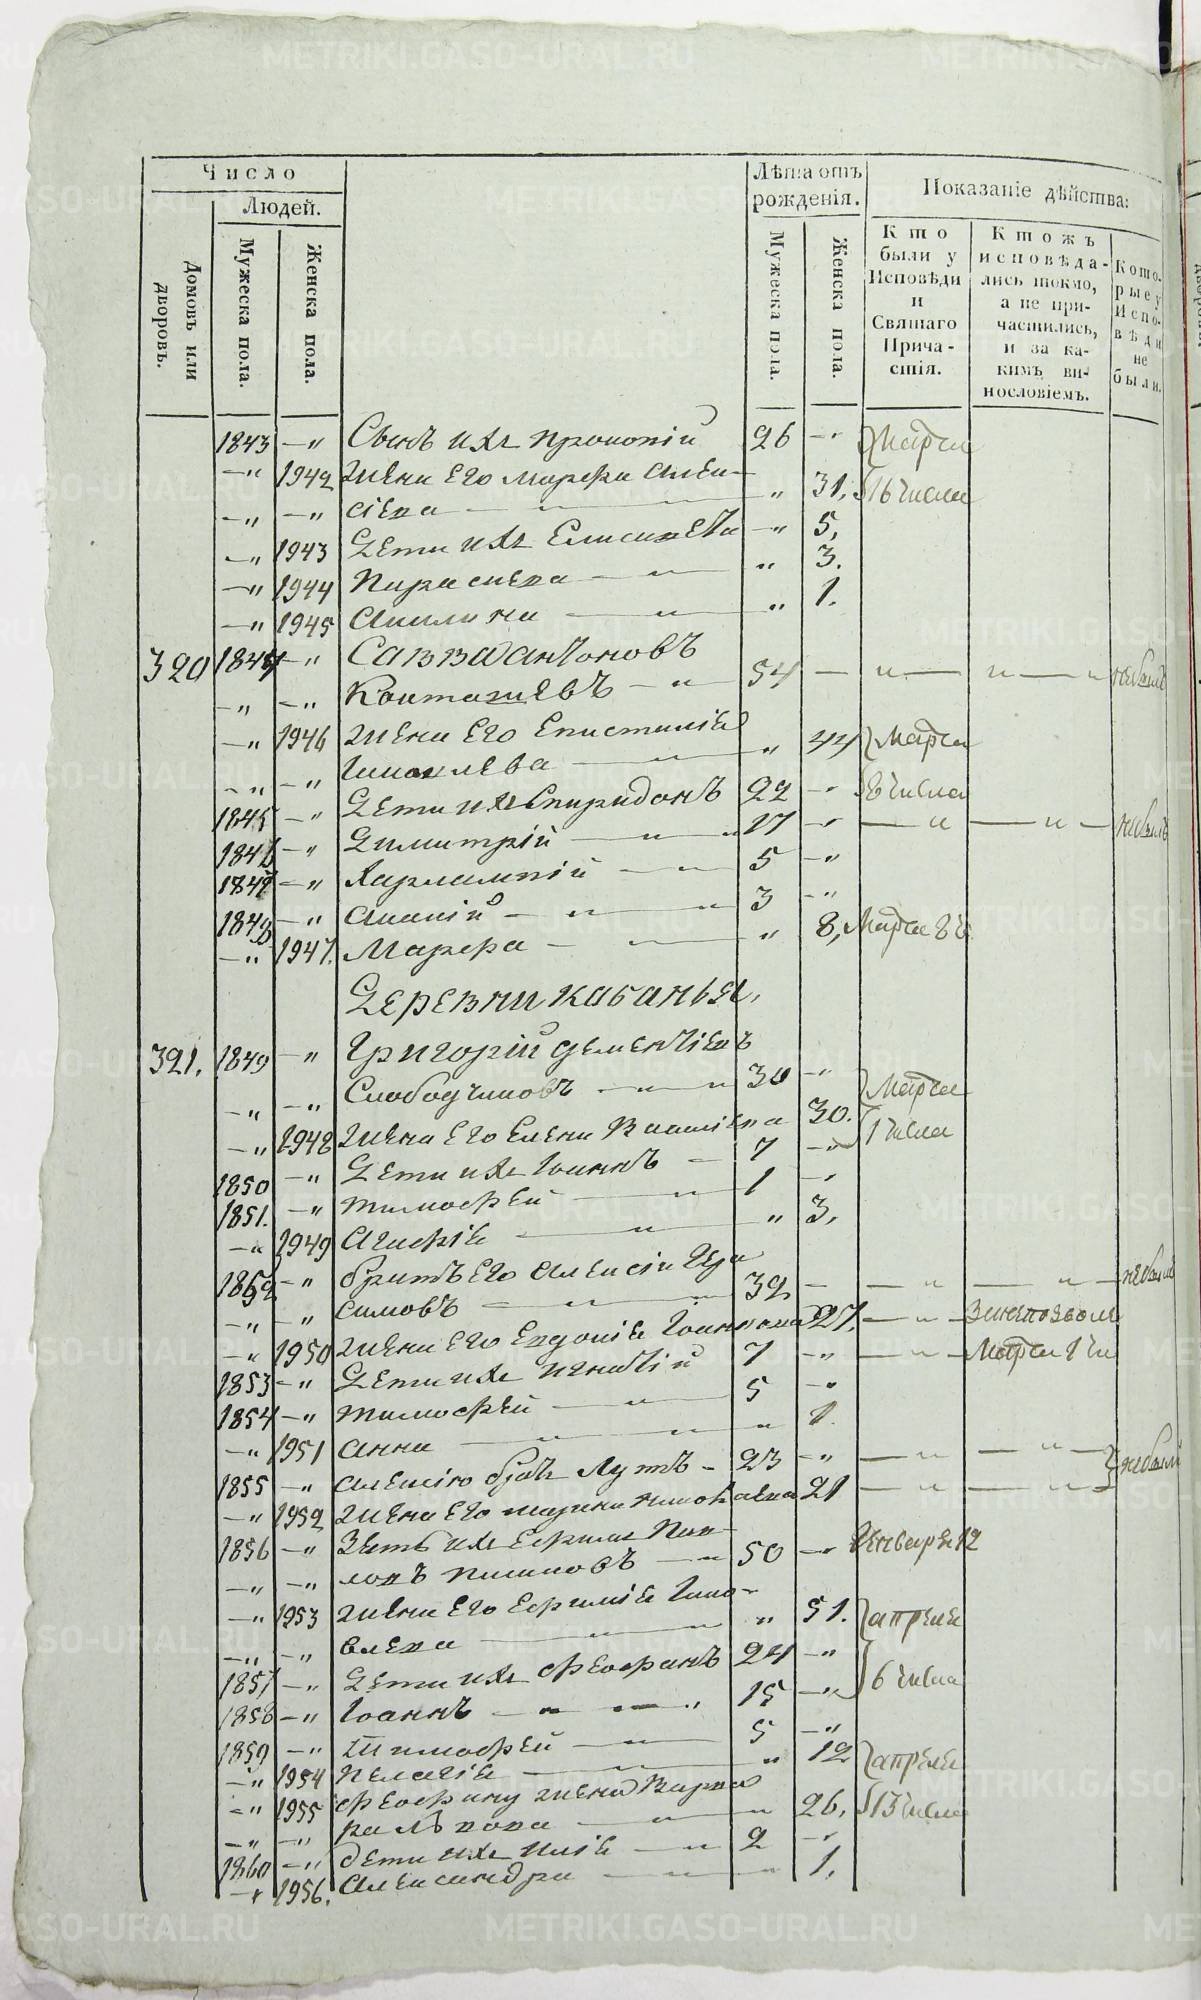 Число
Людей.
Домовъ или дворовъ.
Мужеска пола.
Женска пола.
Лѣта отъ рожденія.
Мужеска пола.
Женска пола.
Показаніе дѣйства:
Кто были у Исповѣди и Святаго Причастія.
Ктожъ исповѣдались токмо, а не причастились, и за какимъ винословіемъ.
Которые у Исповѣди не были.
1843 —„ Сынъ ихъ Прокопій 26 —„ Марта
—„ 1942 Жена его Марфа Алек-
—„ —„ сіева — „ 31. 16 числа
—„ 1943 Дети ихъ Елисавета —„ 5,
—„ 1944 Параскева — „ — „ 3.
—„ 1945 Акилина — „ — „ 1.
320 1844 —„ Савва Антоновъ
—„ —„ — „ 54 — — „ — — „ — „ небылъ
—„ 1946 Жена его Епистимія
—„ —„ — „ — „ 44 Марта
1845 —„ Дети ихъ Спиридонъ 22 —„ 8 числа
1846 —„ Димитрій — „ — „ 17 —„ — „ — „ — небылъ
1847 —„ Харлампій — „ 5 —„
1848 —„ Ананій — „ — „ 3 —„
—„ 1947. Марфа — „ — „ 8, Марта 8 ч
Деревни Кабанья,
321. 1849 —„ Григорій Дементіевъ
—„ —„ Слободчиковъ — „ — „ 30 —„ Марта
—„ 1948 Жена его Елена Василіева 30. 1 числа
1850 —„ Дети ихъ Іоаннъ — 7 —„
1851. —„ Тимофей — „ 1 —„
—„ 1949 Агафія — „ — „ 3,
1852 —„ братъ его Алексій Гера
—„ —„ симовъ — „ — 32 — — „ — „ — небылъ
—„ 1950 Жена его Евдокія Іоаннова 27. — „ —
1853 —„ Дети ихъ Игнатій 7 —„ — „ — Марта 1 чи
1854 —„ Тимофей — „ 5 —„
—„ 1951 Анна — „ — „ 1.
1855 —„ Алексію братъ Лутъ — 23 —„ — „ — „ — небыли
—„ 1952 Жена его Марина 21 — „ — „
1856 —„ Зять ихъ Ефимъ Пав-
—„ —„ ловъ — „ 50 —„ Генваря 12
—„ 1953 Жена его Ефимія Іако-
—„ —„ влева — „ — „ 51. апреля
1857 —„ Дети ихъ Феофанъ 24 —„ 6 числа
1858 —„ Іоаннъ — „ — „ 15 —„
1859 —„ Тимофей — „ 5 —„
—„ 1954 Пелагія — „ 12 апреля
—„ 1955 Феофану жена Варва
—„ —„ — „ 26, 13 числа
1860 —„ дети ихъ Илія — „ 2 —„
—„ 1956. Александра — „ — 1.
METRIKI.GASO-URAL.RU